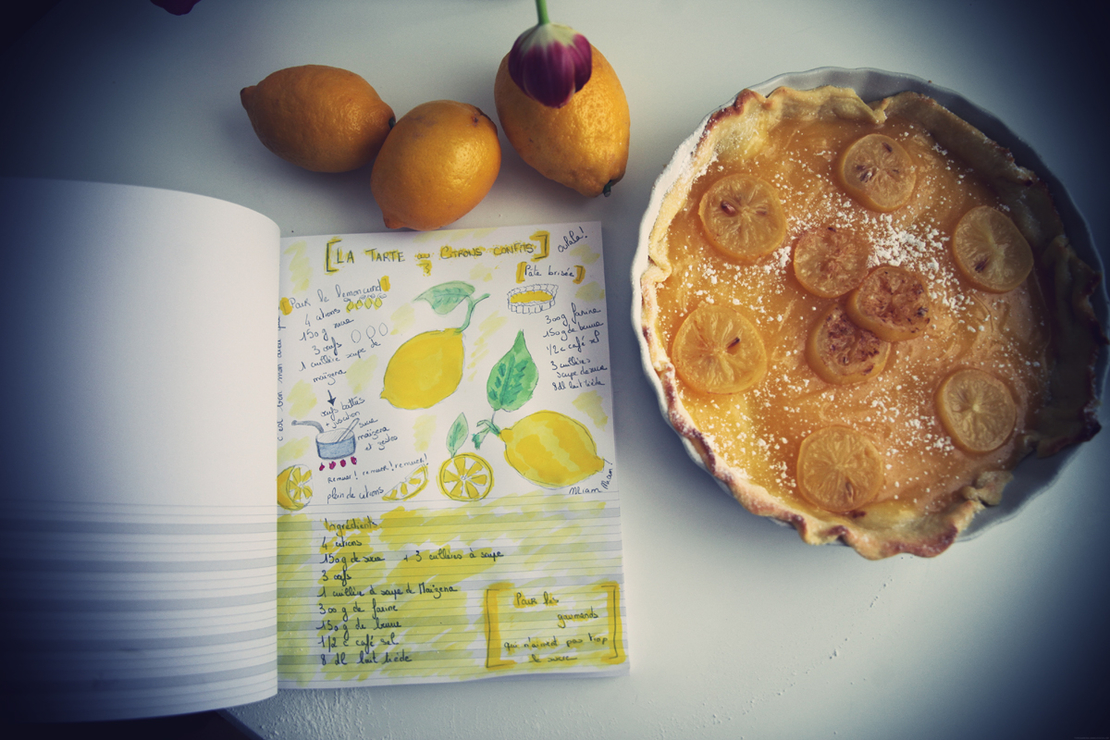 [LA TARTE au Citrons confits]
ohlala!
Pour le lemon curd
4 citrons
150 g sucre
3 oeufs
1 cuillère soupe de
maïzena
[Pâte brisée]
300g farine
150g de beurre
1/2 c café sel
3 cuillères
soupe de sucre
8 dl lait tiède
oeufs battus
+ sucre
maïzena
remuer! remuer! remuer!
plein de citrons
Miam Miam
Ingrédients
4 citrons
150g de sucre + 3 cuillères à soupe
3 oeufs
1 cuillère à soupe de Maïzena
300 g de farine
150g de beurre
1/2 c café sel
8 dl lait tiède
[Pour les
gourmands
qui n'aiment pas trop
le sucre]